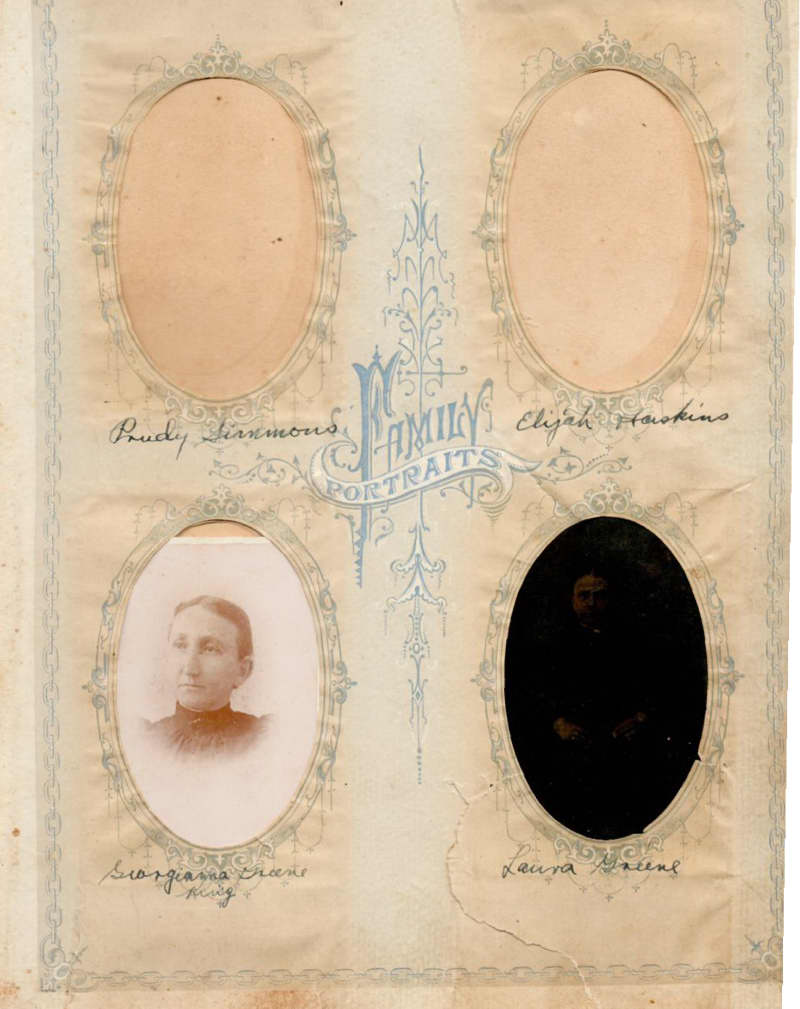 Prudy Simmons
Elijah Haskins
FAMILY
PORTRAITS
Georgianna Greene
King
Laura Greene